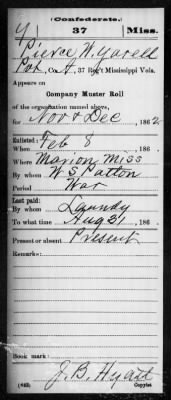 (Confederate.)
Y 37 Miss.
Pierce W. Yarell
Pvt, Co. A, 37 Reg't Mississippi Vols.
Appears on
Company Muster Roll
of the organization named above,
for Nov & Dec, 186 2
Enlisted:
When Feb 8, 186 .
Where Marion, Miss
By whom W S Patton
Period War
Last paid:
By whom Laundy
To what time Aug 31, 186 .
Present or absent Present
Remarks:
Book mark:
J. B. Hyatt
(642) Copyist.